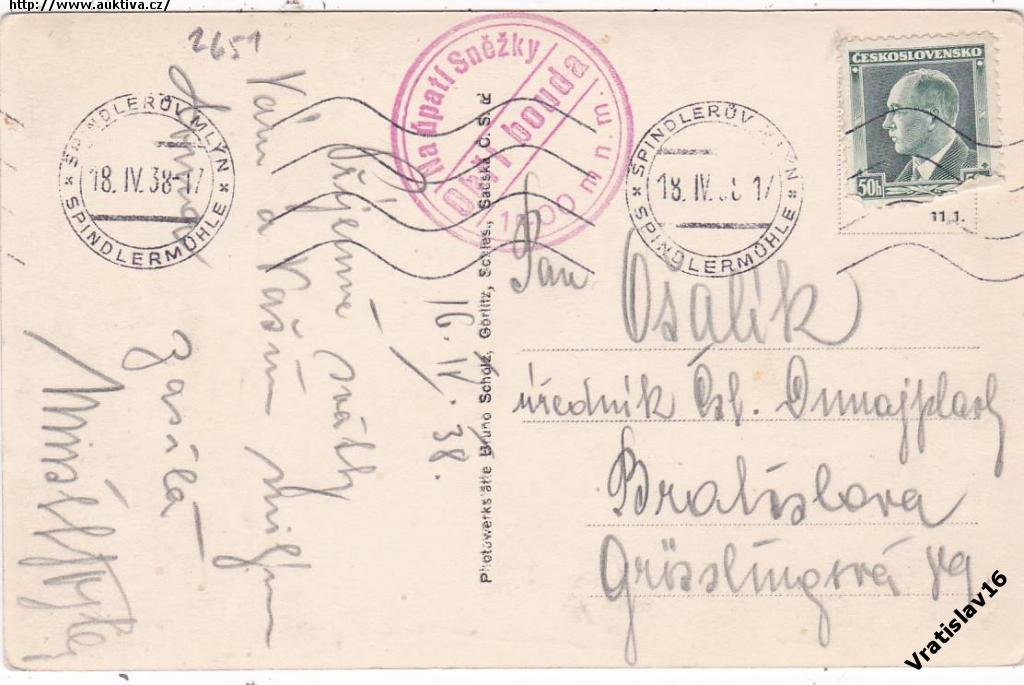 http://www.auktiva.cz/
2651
Na úpatí Sněžky
Obří bouda
1400 m n. m.
ŠPINDLERŮV MLÝN
18. IV. 38-17
SPINDLERMÜHLE
ŠPINDLERŮV MLÝN
18. IV. 38-17
SPINDLERMÜHLE
ČESKOSLOVENSKO
50h
11.1.
16. IV. 38.
Příjemné svátky
Vám a Vašim
zasílá
Photowerkstätte Bruno Scholz, Görlitz, Schles., Sadská Č. S. R.
Pan
Osalík
úředník Čsl. Dunajplavby
Bratislava
Grösslingová 49
Vratislav16